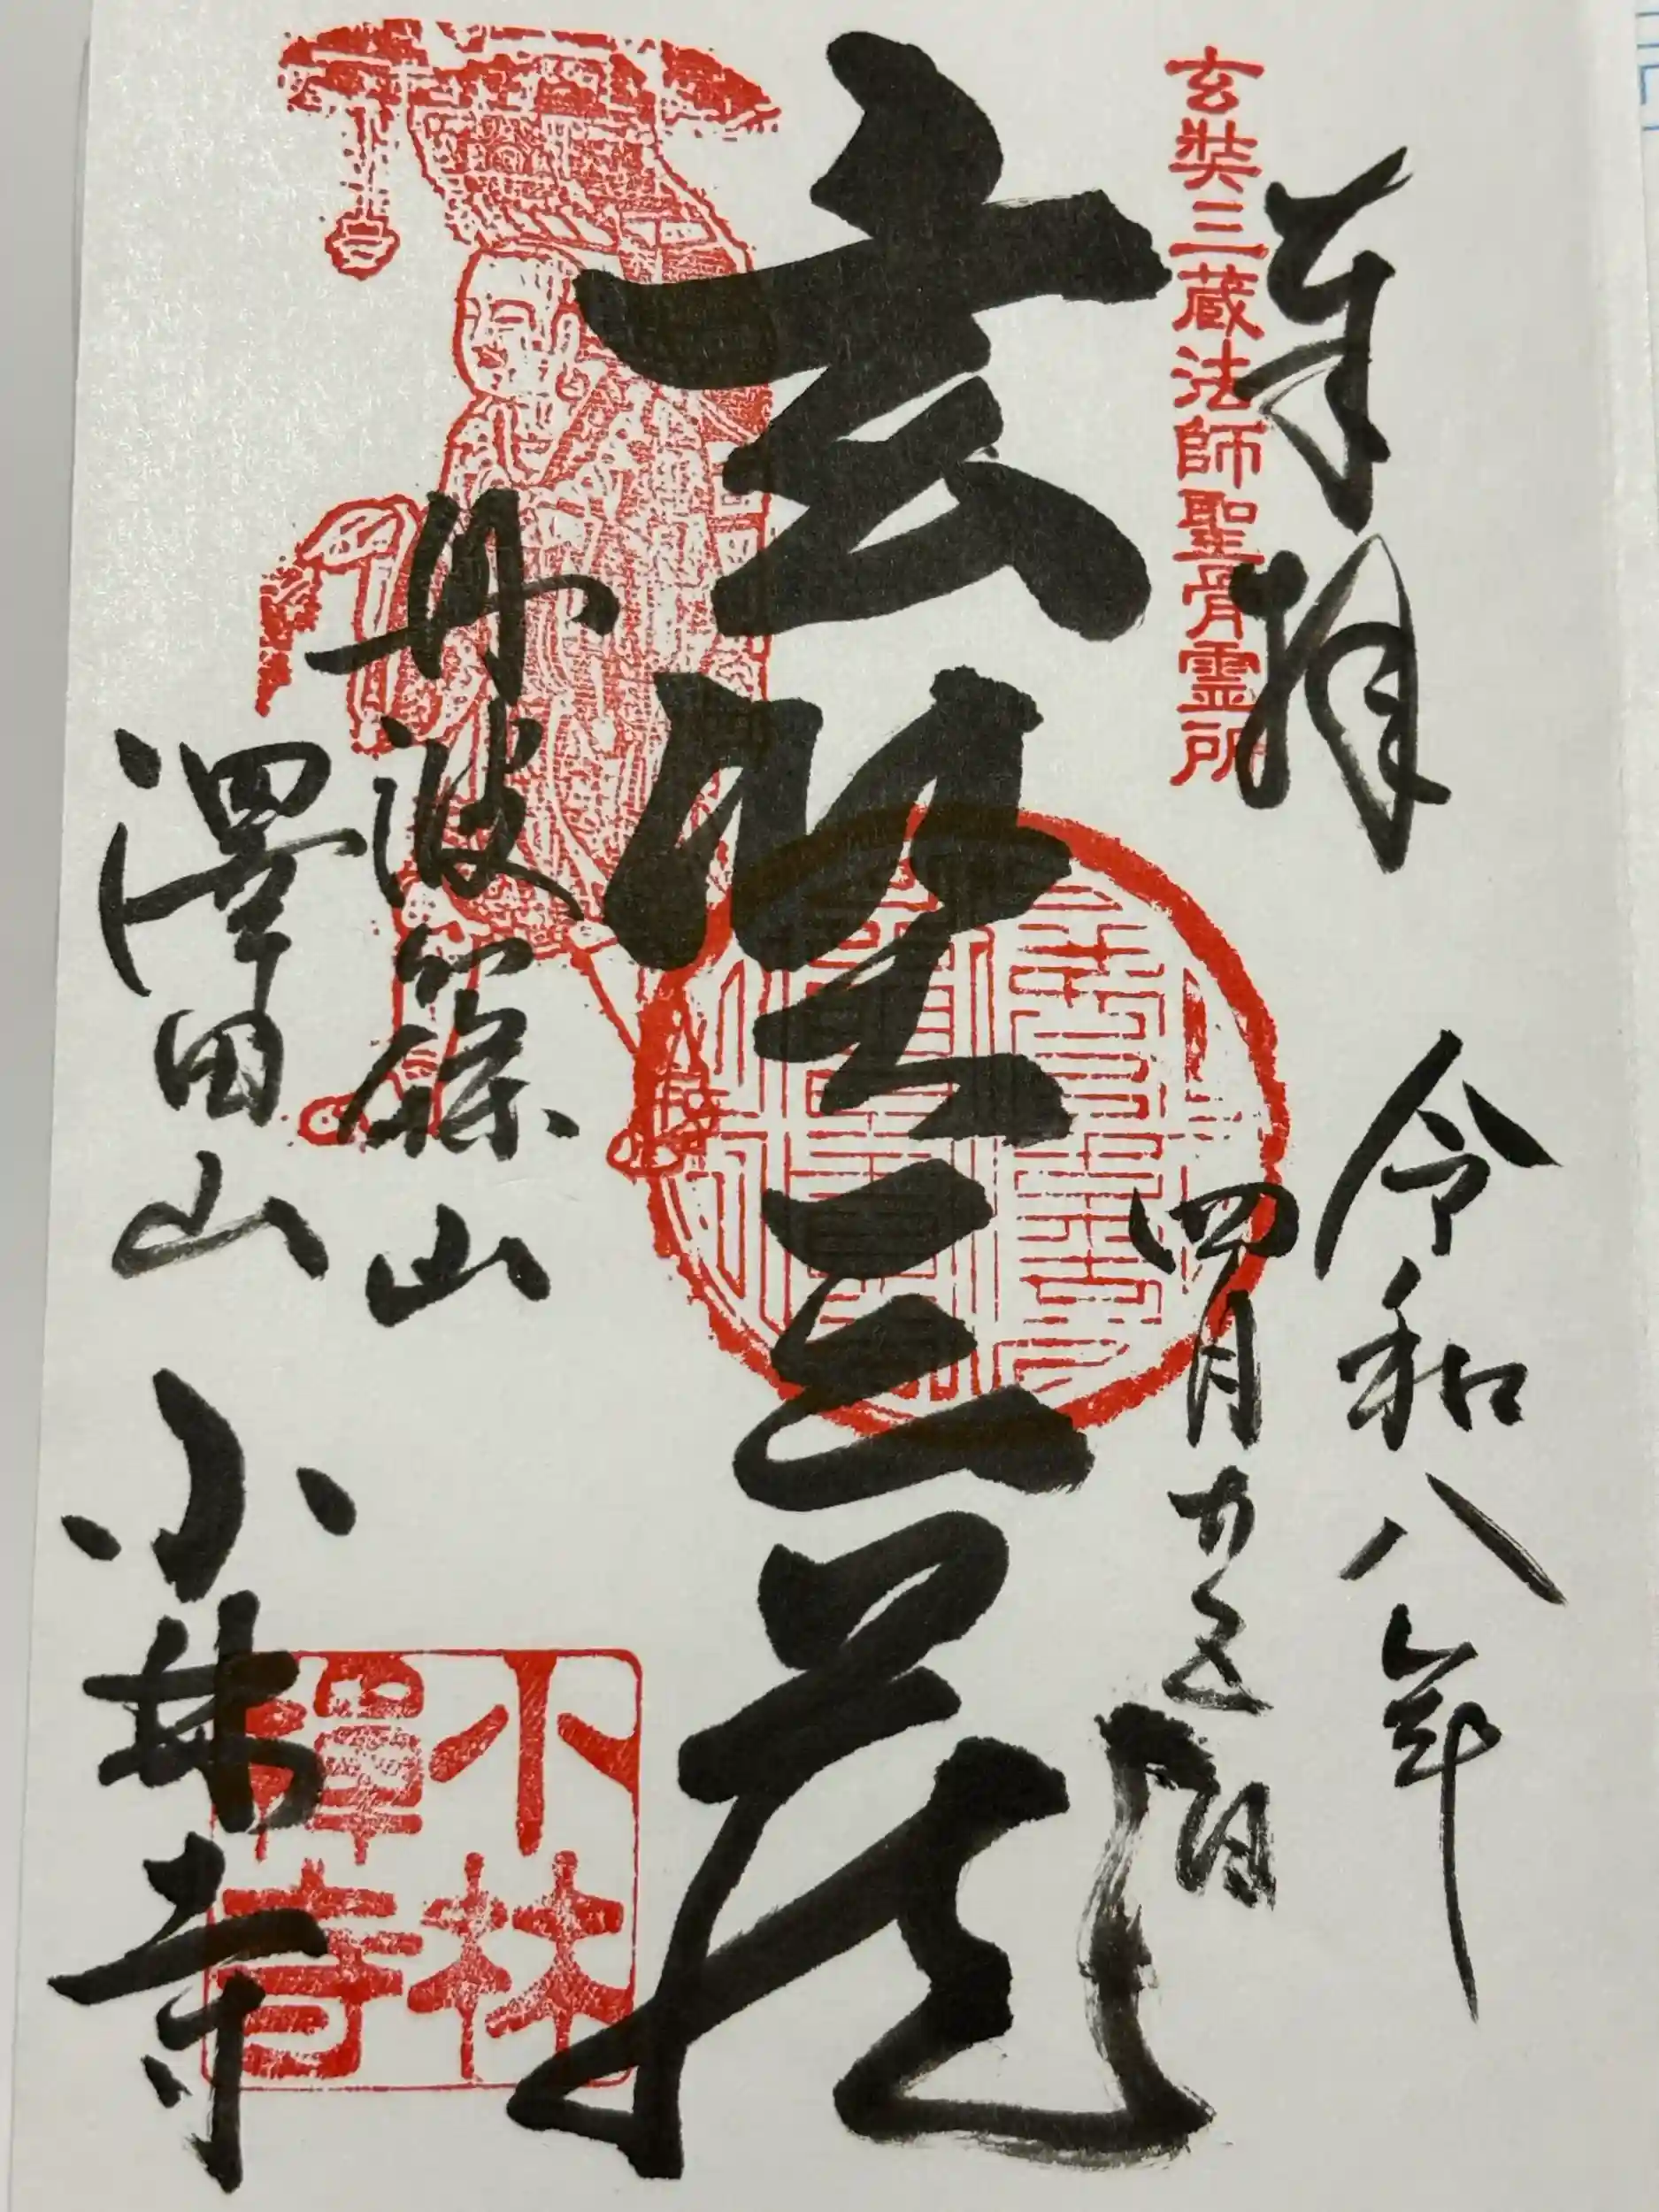 奉拝
玄奘三蔵法師聖骨霊所
令和八年
四月五日
玄奘三蔵
丹波篠山
澤田山
小林寺
小林
禅寺